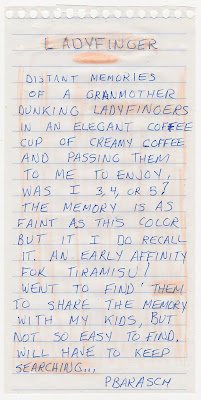 LADYFINGER
DISTANT MEMORIES
OF A GRANMOTHER
DUNKING LADYFINGERS
IN AN ELEGANT COFFEE
CUP OF CREAMY COFFEE
AND PASSING THEM
TO ME TO ENJOY.
WAS I 3, 4, OR 5?
THE MEMORY IS AS
FAINT AS THIS COLOR
BUT IT I DO RECALL
IT. AN EARLY AFFINITY
FOR TIRAMISU!
WENT TO FIND THEM
TO SHARE THE MEMORY
WITH MY KIDS, BUT
NOT SO EASY TO FIND.
WILL HAVE TO KEEP
SEARCHING...
PBARASCH